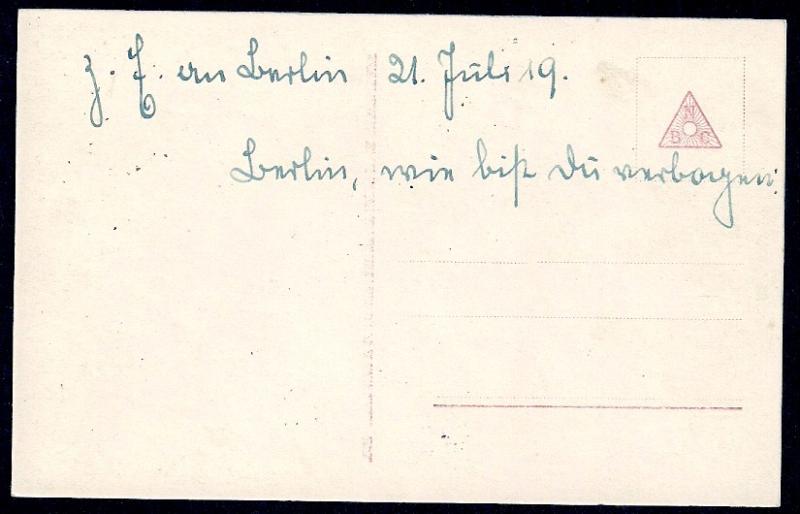 z. E. an Berlin 21. Juli 19.
N
B C
Berlin, wie bist Du verbogen.